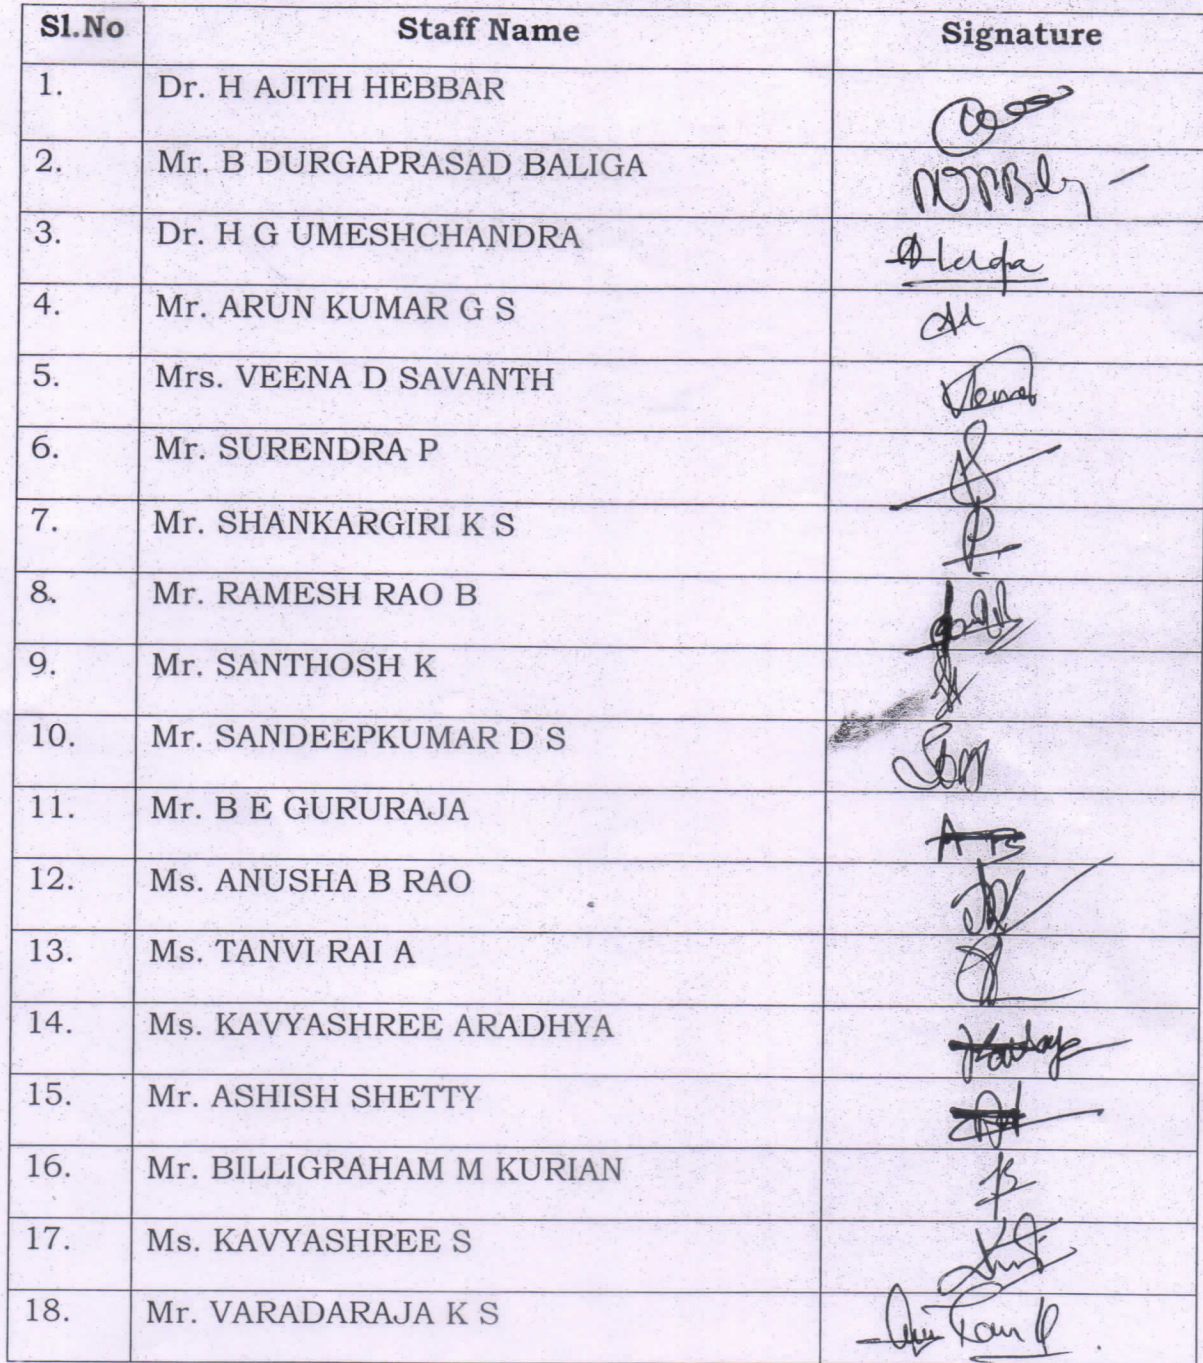 Sl.No Staff Name Signature
1. Dr. H AJITH HEBBAR
2. Mr. B DURGAPRASAD BALIGA
3. Dr. H G UMESHCHANDRA
4. Mr. ARUN KUMAR G S
5. Mrs. VEENA D SAVANTH
6. Mr. SURENDRA P
7. Mr. SHANKARGIRI K S
8. Mr. RAMESH RAO B
9. Mr. SANTHOSH K
10. Mr. SANDEEPKUMAR D S
11. Mr. B E GURURAJA
12. Ms. ANUSHA B RAO
13. Ms. TANVI RAI A
14. Ms. KAVYASHREE ARADHYA
15. Mr. ASHISH SHETTY
16. Mr. BILLIGRAHAM M KURIAN
17. Ms. KAVYASHREE S
18. Mr. VARADARAJA K S